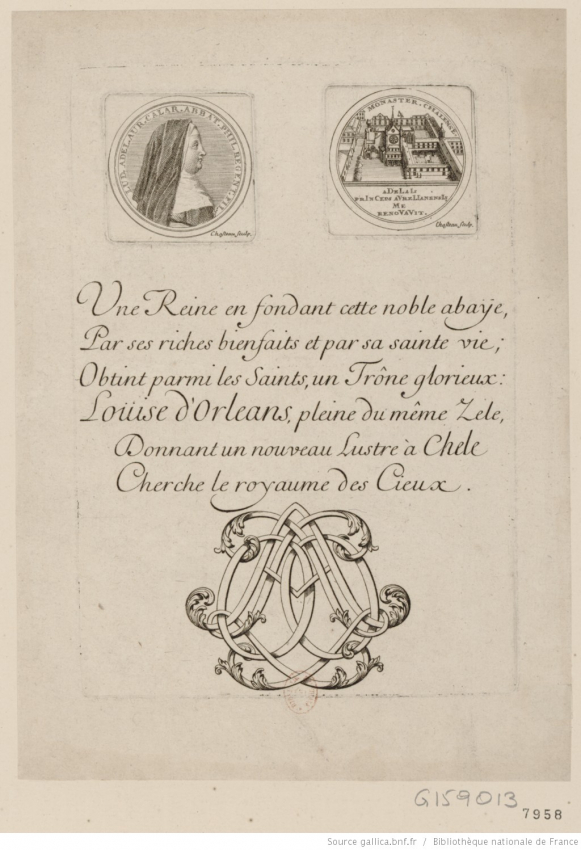 LUD. ADEL. AUR. CALAR. ABBAT. PHIL. REGENT. FIL.
Chasteau, sculp.
MONASTER. CHALENSE
ADELAIS
PRINCEPS AVRELIANENSIS
ME
RENOVAVIT.
Chasteau, sculp.
Vne Reine en fondant cette noble abaÿe,
Par ses riches bienfaits et par sa sainte vie;
Obtint parmi les Saints, un Trône glorieux:
Loüise d'Orleans, pleine du même Zele,
Donnant un nouveau Lustre à Chele
Cherche le royaume des Cieux.
G159013
7958
Source gallica.bnf.fr / Bibliothèque nationale de France